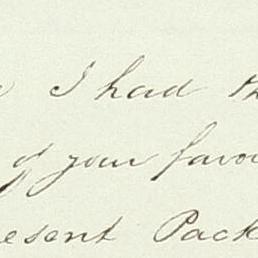 I had th
of your favou
esent Pack